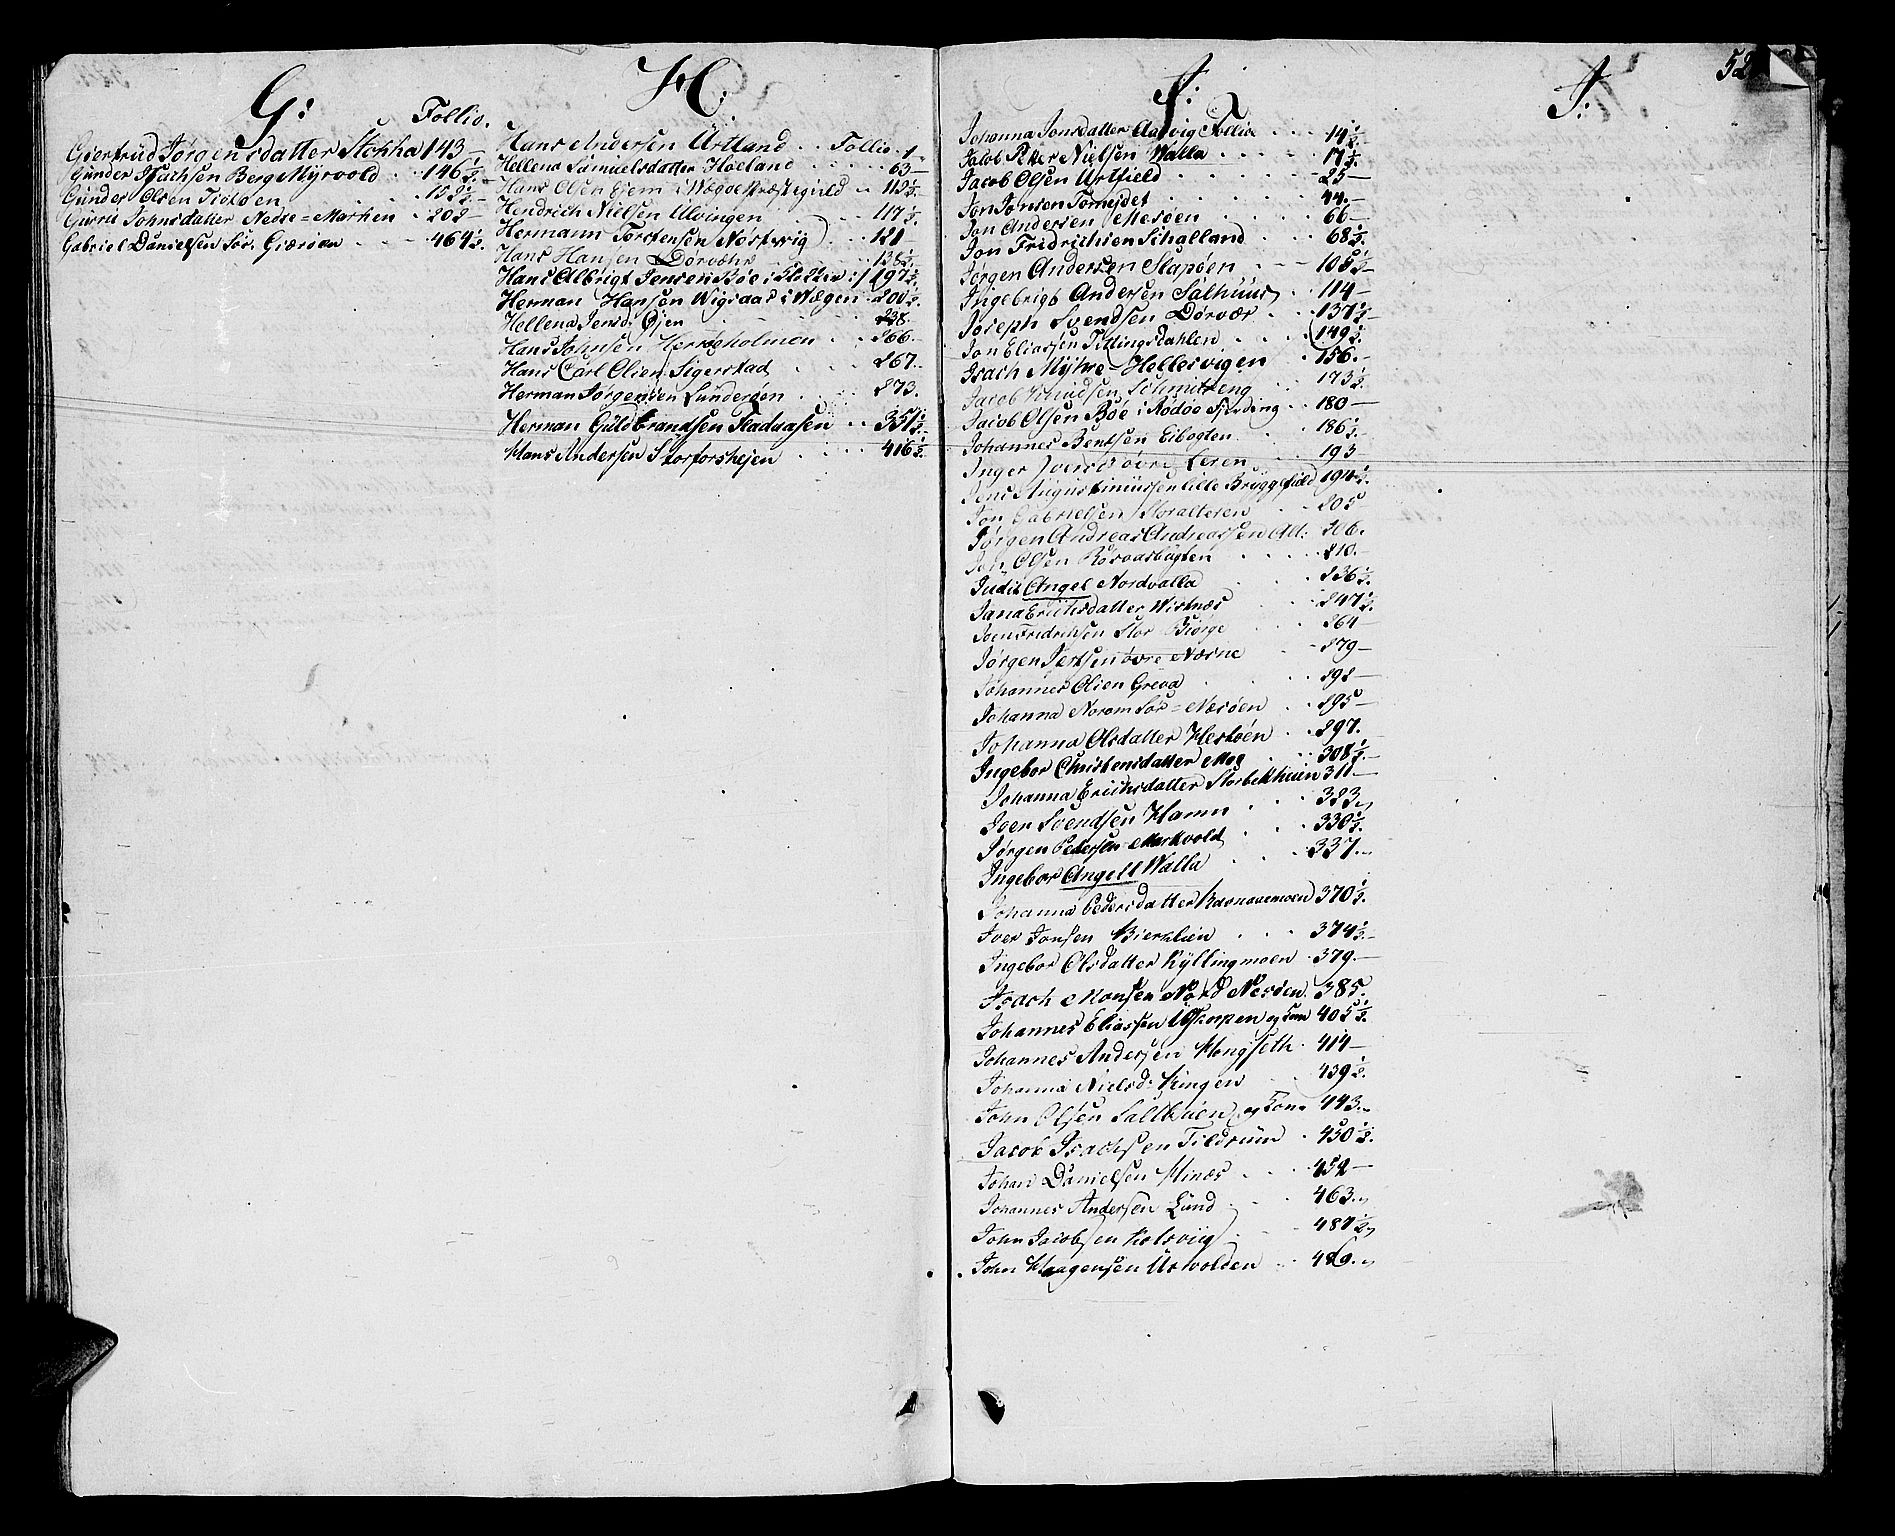 G:
Follio.
Giertrüd Jørgensdatter Stokka 143 —
Günder Isachsen Berg Myrvold . . 146½
Günder Olsen Tiøtøen . . 152½
Gurru Johnsdatter Nedre=Marken . 202 —
Gabriel Danielsen Sør. Giærøen . . . 464½
H:
Hans Andersen Urtland . . Follio. 1
Hellena Samuelsdatter Høeland . . . 63 —
Hans Olsen i Wægøe Præstegield . . 112½
Hendrich Nielsen Ulvingen . . . 117½
Hermann Torstensen Nøstvig . . 121
Hans Hansen Dørvær . . . 138½
Hans Albrigt Jensen Bøe 197½
Herman Hansen Wigsaas i Wægen . 200½
Hellena Jensd: Øjen . . . 238.
Hans Johnsen Herrøeholmen . . 266.
Hans Carl Olsen Sigerstad . . . 267.
Herman Jørgensen Lunderøen . . 273.
Herman Güldbrandsen Fladaasen . . 351½
Hans Andersen Storforshejen . . . 416½
J:
52
Johanna Jonsdatter Aasvig Follio . . . 14½
Jacob Peter Nielsen Walla . . . 17½
Jacob Olsen Urtfield . . . 25 —
Jon Jonsen Fornejdet . . . 44. —
Jon Andersen Mesøen . . . 66 —
Jon Fridrichsen Schalland . . . 68½
Jørgen Andersen Slapøen . . . 105½
Ingebrigt Andersen Salhuus . . 114 —
Joseph Svendsen Dørvær . . . 137½
Jon Eliassen Tittingsdahlen . . . 149½
Isach Myhre Hellesvigen . 156. —
Jacob Knudsen Schmitseng . . . 173½
Jacob Olsen Bøe i Rødøe Fjerding . . 180 —
Johannes Bentsen Eibogten . . . 186½
Inger Iversd: øvre Leren . . 193
Jens Augustiniussen lille Bryggefield 194½
Jon Gabrielsen Storalteren . . 205 —
Jørgen Andreas Andreassen Alt: 206.
Jon Olsen Røsvasbugten . . . 210. —
Judit Angel Nordvalla . . . 236½
Jana Erichsdatter Wistnæs . . . 247½
Joen Fridrichsen Stor Biørge . . . 264 —
Jørgen Jertsen øvre Næsne . . 279 —
Johannes Olsen Greva . . . 292 —
Johanna Norom Sør=Næsøen . . 295 —
Johanna Olsdatter Hestøen . . 297.
Ingebor Christensdatter Moe . . . 308½
Johanna Erichsdatter Storbekhuien 311 —
Joen Svendsen Hamn . . . 323
Jørgen Pedersen Markvold . . 330½
Ingebor Angell Walla . . . 337.
Johanna Pedersdatter 370½
Iver Jonsen Bierklien . . . 374½
Ingebor Olsdatter Kyllingmoen . 379. —
Isach Monsen Nord Nesøen . 385.
Johannes Eliassen og Kone 405½
Johannes Andersen Kongseth . 414 —
Johanna Nielsd: Kingen . . 439½
John Olsen Saltbuen og Kone 443.
Jacob Isachsen Tildrüm . 450½
Johan Danielsen Minæs . . . 452 —
Johannes Andersen Lund . . . 463.
John Jacobsen Holsvig . . . 487½
John Haagensen Urvolden . . 489.
J: